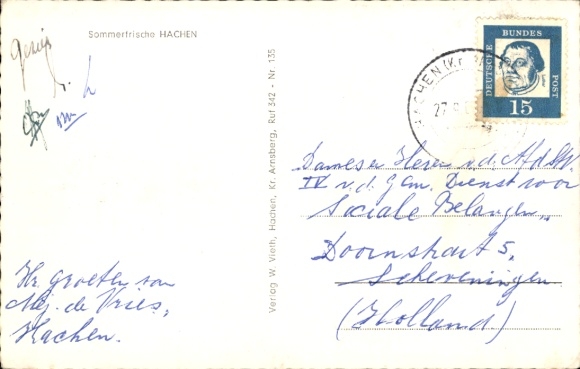 Sommerfrische HACHEN
gezien
HACHEN (Kr.
27.
DEUTSCHE BUNDES POST
15
Verlag W. Vieth, Hachen, Kr. Arnsberg, Ruf 342 - Nr. 135
Dames en Heren v.d. Afd.
IV v.d. Gem. Dienst voor
Sociale Belangen,
Doornstraat 5,
Scheveningen
(Holland)
Hr. groeten van
Mej. de Vries,
Hachen.